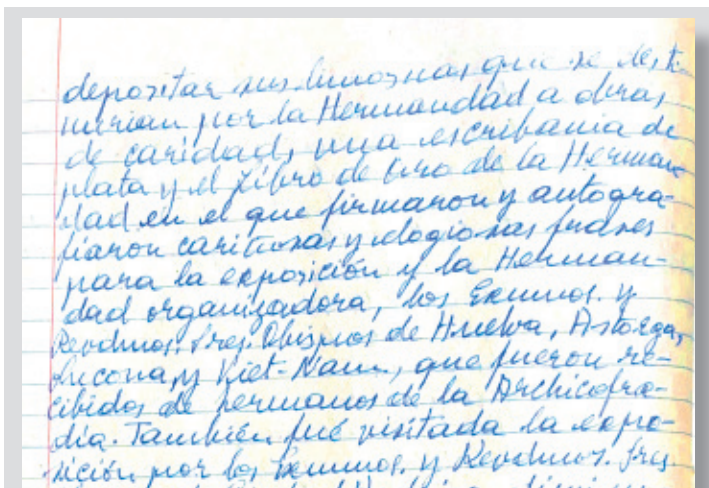 depositar sus limosnas que se desti-
narian por la Hermandad a obras
de caridad, una escribania de
plata y el Libro de Oro de la Herman-
dad en el que firmaron y autogra-
fiaron cariñosas y elogiosas frases
para la exposición y la Herman-
dad organizadora, los Exmmos. y
Revdmos. Sres. Obispos de Huelva, Astorga,
y Viet-Nam, que fueron re-
cibidos de hermanos de la Archicofra-
día. También fué visitada la expo-
sición por los Exmmos. y Revdmos. Sres.